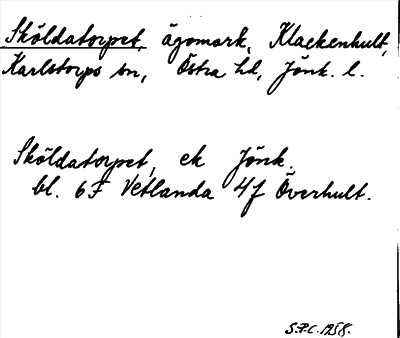 Sköldatorpet, ägomark, Klackenhult,
Karlstorps sn, Östra hd, Jönk. l.
Sköldatorpet, ek Jönk.
bl. 6F Vetlanda 4f Överhult.
S.P.C. 1958.